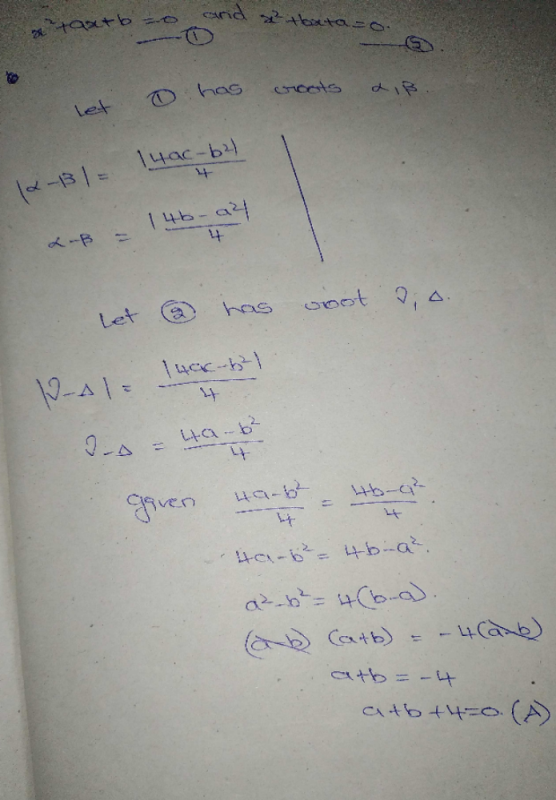 x²+ax+b=0 and x²+bx+a=0.
① ②.
Let ① has roots α,β.
|α-β| = |4ac-b²|/4
α-β = |4b-a²|/4
Let ② has root γ, Δ.
|γ-Δ| = |4ac-b²|/4
γ-Δ = 4a-b²/4
given 4a-b²/4 = 4b-a²/4.
4a-b² = 4b-a².
a²-b² = 4(b-a).
(a-b) (a+b) = -4(a-b)
a+b = -4
a+b+4=0. (A)